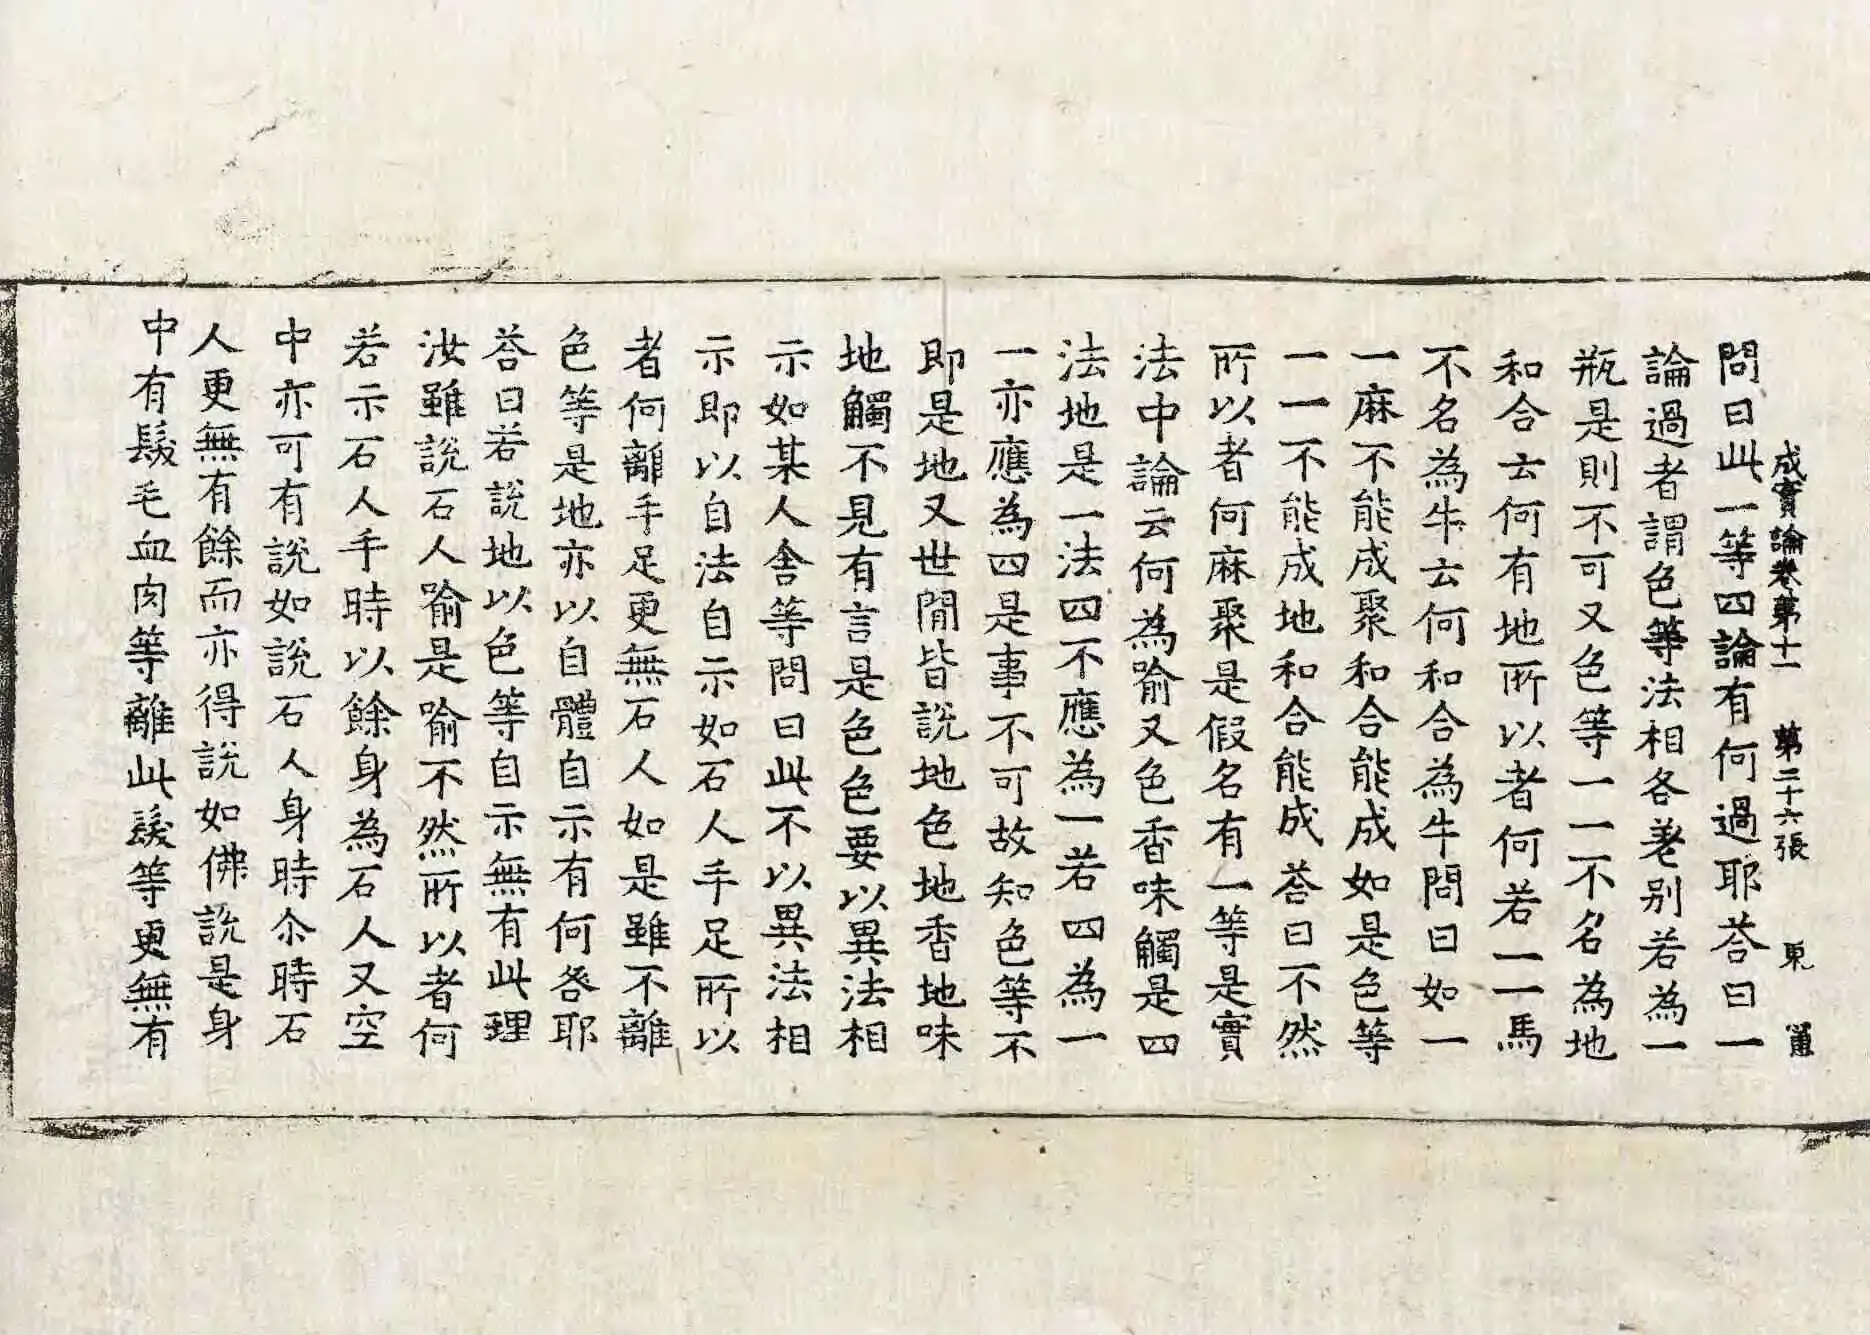 成實論卷第十一 第二十六張 東
問曰此一等四論有何過耶荅曰一
論過者謂色等法相各差别若為一
瓶是則不可又色等一一不名為地
和合云何有地所以者何若一一馬
不名為牛云何和合為牛問曰如一
一麻不能成聚和合能成如是色等
一一不能成地和合能成荅曰不然
所以者何麻聚是假名有一等是實
法中論云何為喻又色香味觸是四
法地是一法四不應為一若四為一
一亦應為四是事不可故知色等不
即是地又世閒皆說地色地香地味
地觸不見有言是色色要以異法相
示如某人舍等問曰此不以異法相
示即以自法自示如石人手足所以
者何離手足更無石人如是雖不離
色等是地亦以自體自示有何咎耶
荅曰若說地以色等自示無有此理
汝雖說石人喻是喻不然所以者何
若示石人手時以餘身為石人又空
中亦可有說如說石人身時尒時石
人更無有餘而亦得說如佛說是身
中有髮毛血肉等離此髮等更無有